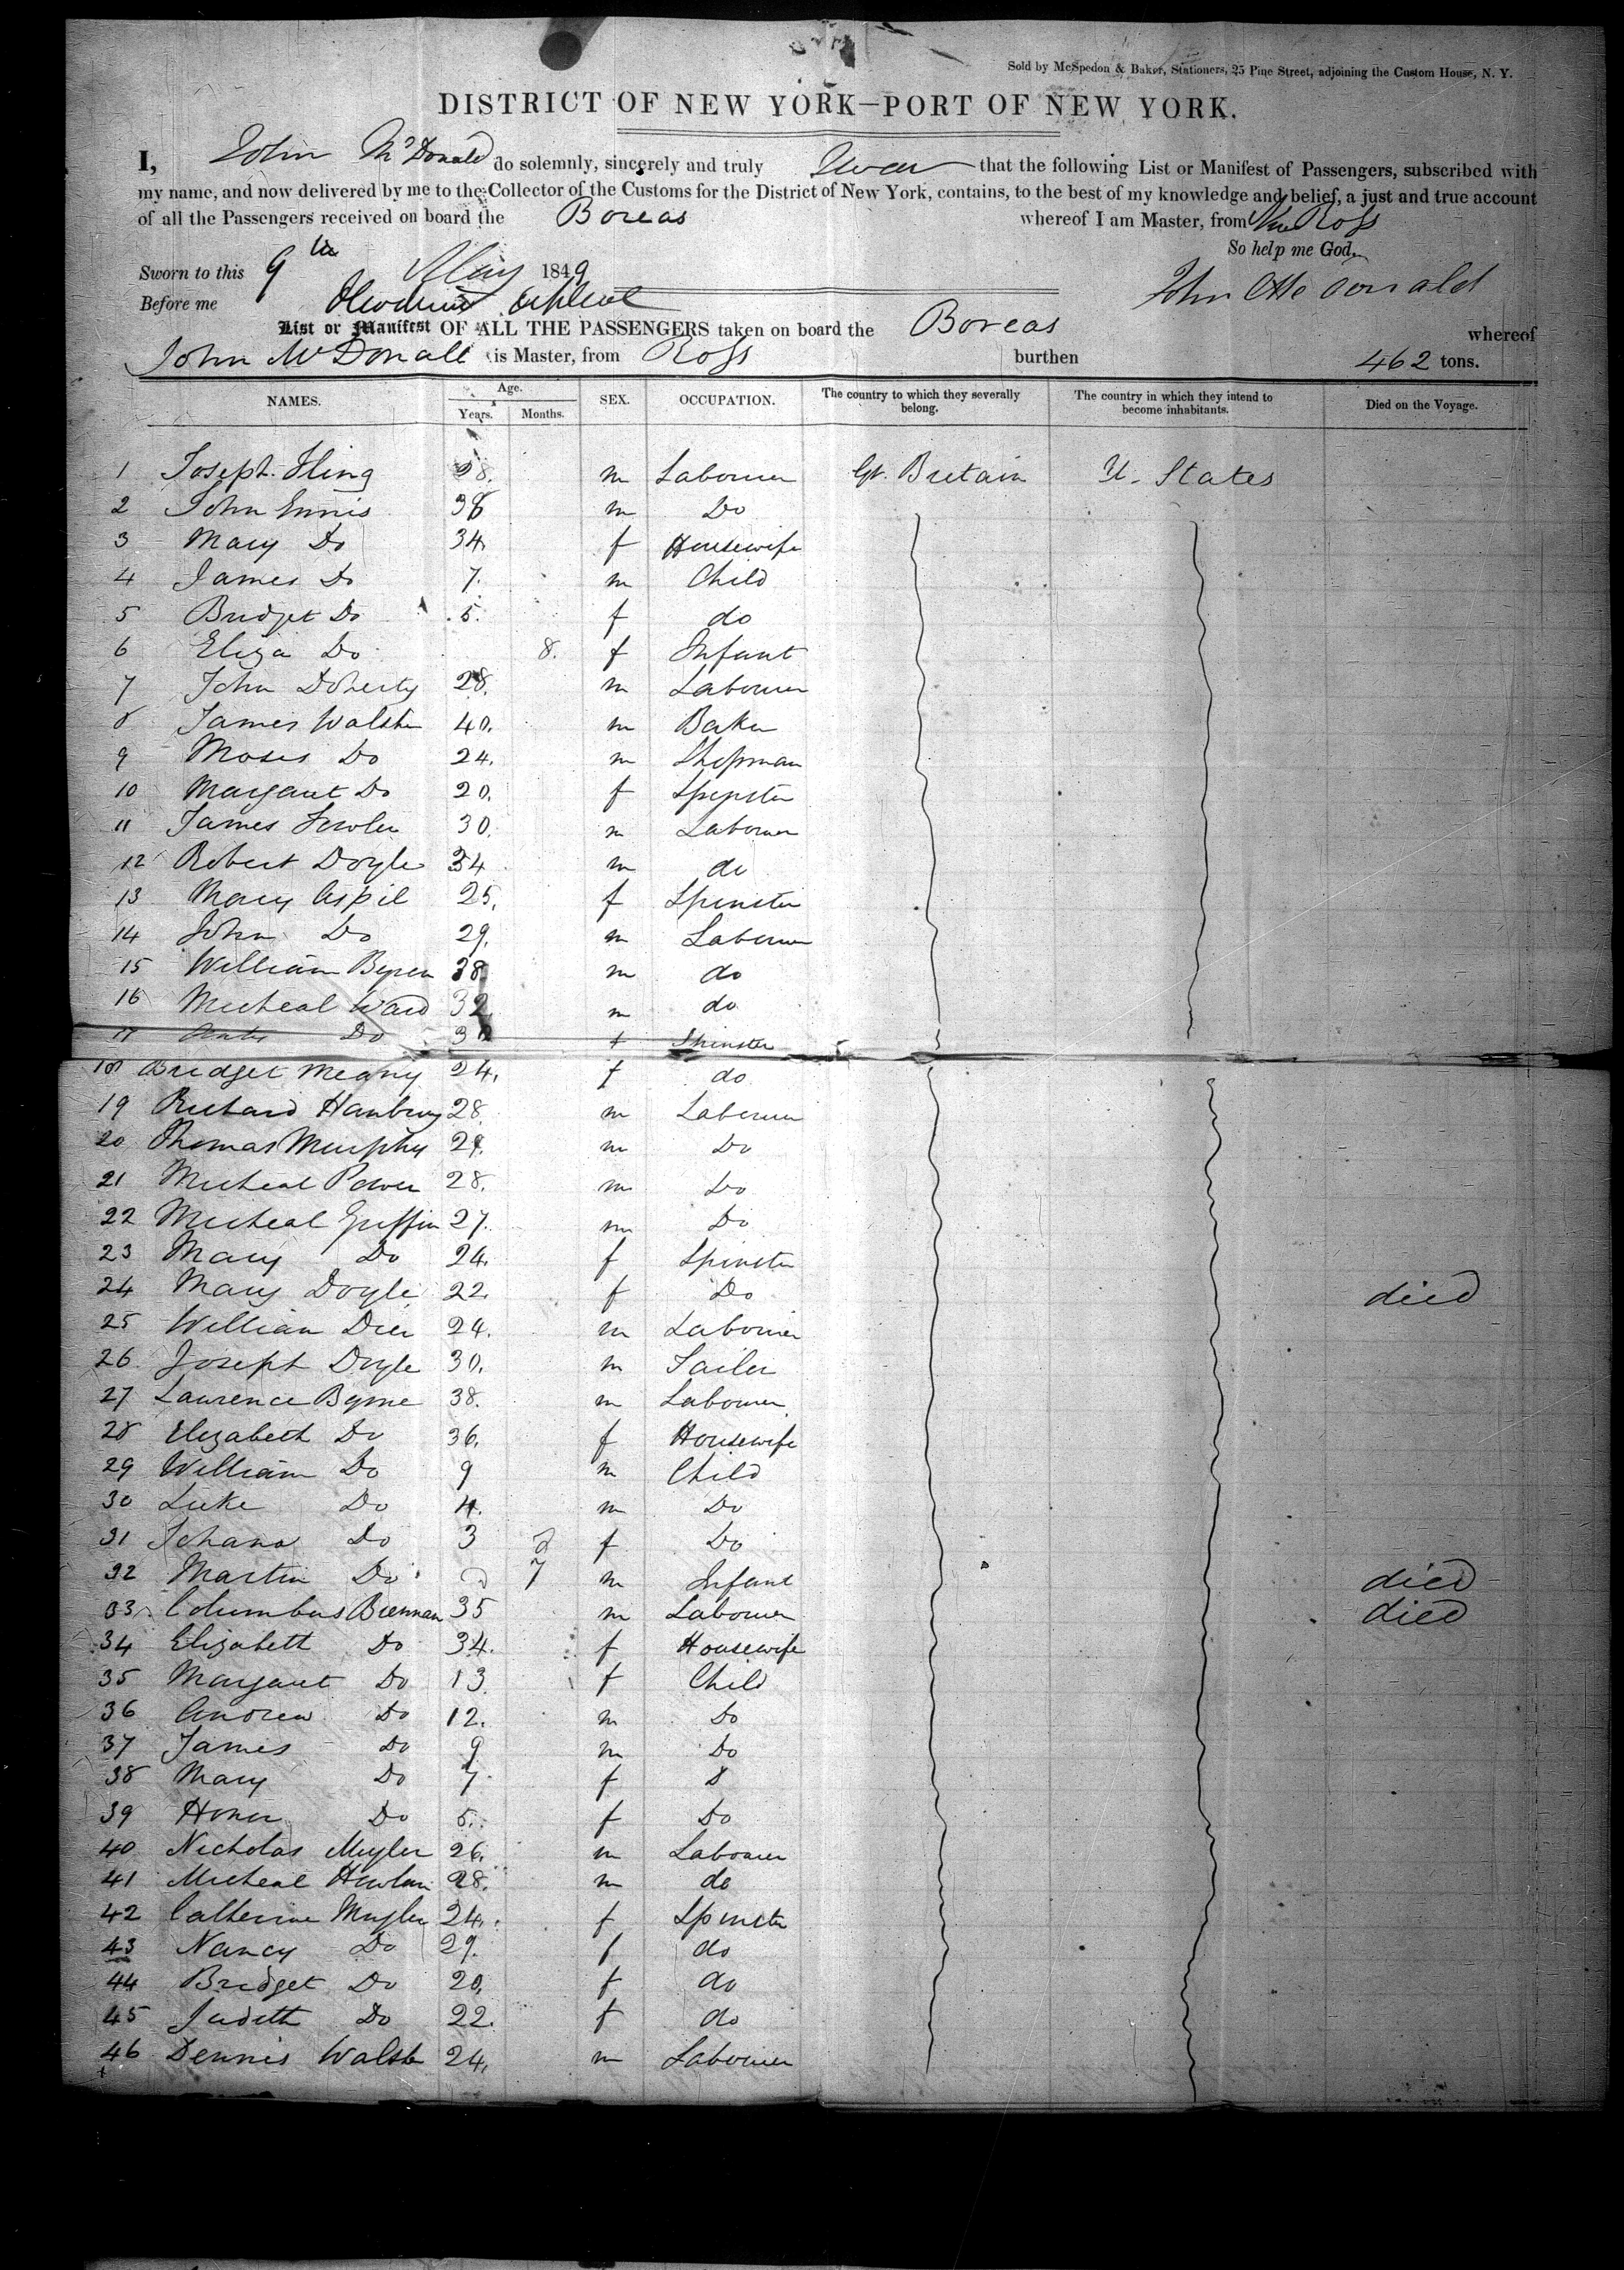 Sold by McSpedon & Baker, Stationers, 25 Pine Street, adjoining the Custom House, N. Y.
DISTRICT OF NEW YORK—PORT OF NEW YORK.
I, John McDonald do solemnly, sincerely and truly Swear that the following List or Manifest of Passengers, subscribed with
my name, and now delivered by me to the Collector of the Customs for the District of New York, contains, to the best of my knowledge and belief, a just and true account
of all the Passengers received on board the Boreas whereof I am Master, from New Ross
So help me God.
Sworn to this 9th May 1849
John McDonald
Before me
List or Manifest OF ALL THE PASSENGERS taken on board the Boreas whereof
John McDonald is Master, from Ross burthen 462 tons.
NAMES. Age. Years. Months. SEX. OCCUPATION. The country to which they severally belong. The country in which they intend to become inhabitants. Died on the Voyage.
1 Joseph Fling 28. m Labourer Gt. Britain U. States
2 John Ennis 38 m Do
3 Mary Do 34 f Housewife
4 James Do 7. m Child
5 Bridget Do 5. f do
6 Eliza Do 8. f Infant
7 John Doherty 28. m Labourer
8 James Walsh 40. m Baker
9 Moses Do 24. m Shopman
10 Margaret Do 20. f Spinster
11 James Fowler 30. m Labourer
12 Robert Doyle 34 m do
13 Mary Aspil 25. f Spinster
14 John Do 29. m Labourer
15 William Byren 38 m do
16 Micheal Ward 32 m do
17 Do f Spinster
18 Bridget Meany 24. f do
19 Richard Hanbury 28 m Labourer
20 Thomas Murphy 29. m Do
21 Micheal Power 28. m Do
22 Micheal Griffin 27. m Do
23 Mary Do 24. f Spinster
24 Mary Doyle 22. f Do died
25 William Dier 24. m Labourer
26 Joseph Doyle 30. m Sailer
27 Lawrence Byrne 38. m Labourer
28 Elizabeth Do 36. f Housewife
29 William Do 9 m Child
30 Luke Do 4. m Do
31 Johana Do 3 2 f Do
32 Martin Do 7 m Infant died
33 Columbus Brennan 35 m Labourer died
34 Elizabeth Do 34. f Housewife
35 Margaret Do 13 f Child
36 Andrew Do 12. m Do
37 James Do 9 m Do
38 Mary Do 7 f
39 Honor Do 5. f Do
40 Nicholas Mugler 26. m Labourer
41 Micheal Howlan 28. m do
42 Catherine Mugler 24. f Spinster
43 Nancy Do 29. f do
44 Bridget Do 20. f do
45 Judith Do 22. f do
46 Dennis Walsh 24. m Labourer